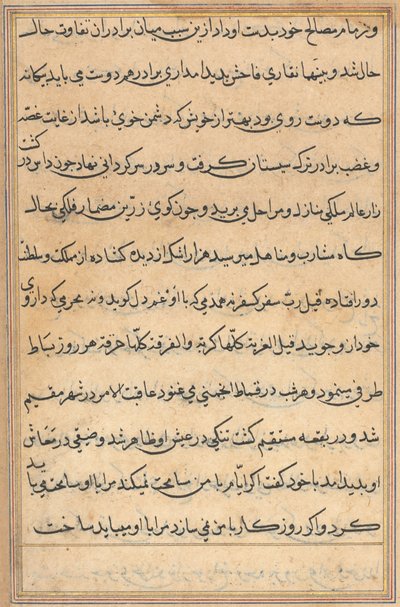 و زمام مصالح خود بدست او داد ازین سبب میان برادران تفاوت حال
حال شد و بینهما نقاری فاحش پدید امد اری برادر هم دوست می باید بیکانه
که دوست روی بود بهتر از خویش که دشمن خوی باشد از غایت غصه
و غضب برادر ترک سیستان کرفت و سر در سرکردانی نهاد چون داس در کشت
زار عالم سلکی بنازل و مراحل می برید و چون کوی زرین مضمار فلکی بحال
کاه مشارب و مناهل میرسید هزار اشک از دیده کشاده از مملکت و سلطنت
دور افتاده قیل رب سفر کسقر نه همدمی که با او غم دل کوید و نه محرمی که داروی
خود از و جوید قیل الغربة کلها کربة والفرقة کلها حرقة هر روز بساط
طرفی میپیمود و هر شب در قماط انجمنی می غنود عاقبت الامر در شهر مقیم
شد و در بقعه مستقیم کشت تنکی در عیش او ظاهر شد و ضیقی در معاش
او پدید امد با خود کفت اکر ایام با من مسامحت نمیکند مرا با او مسامحت می باید
کرد و اکر روزکار با من نمی سازد مرا با او میباید ساخت